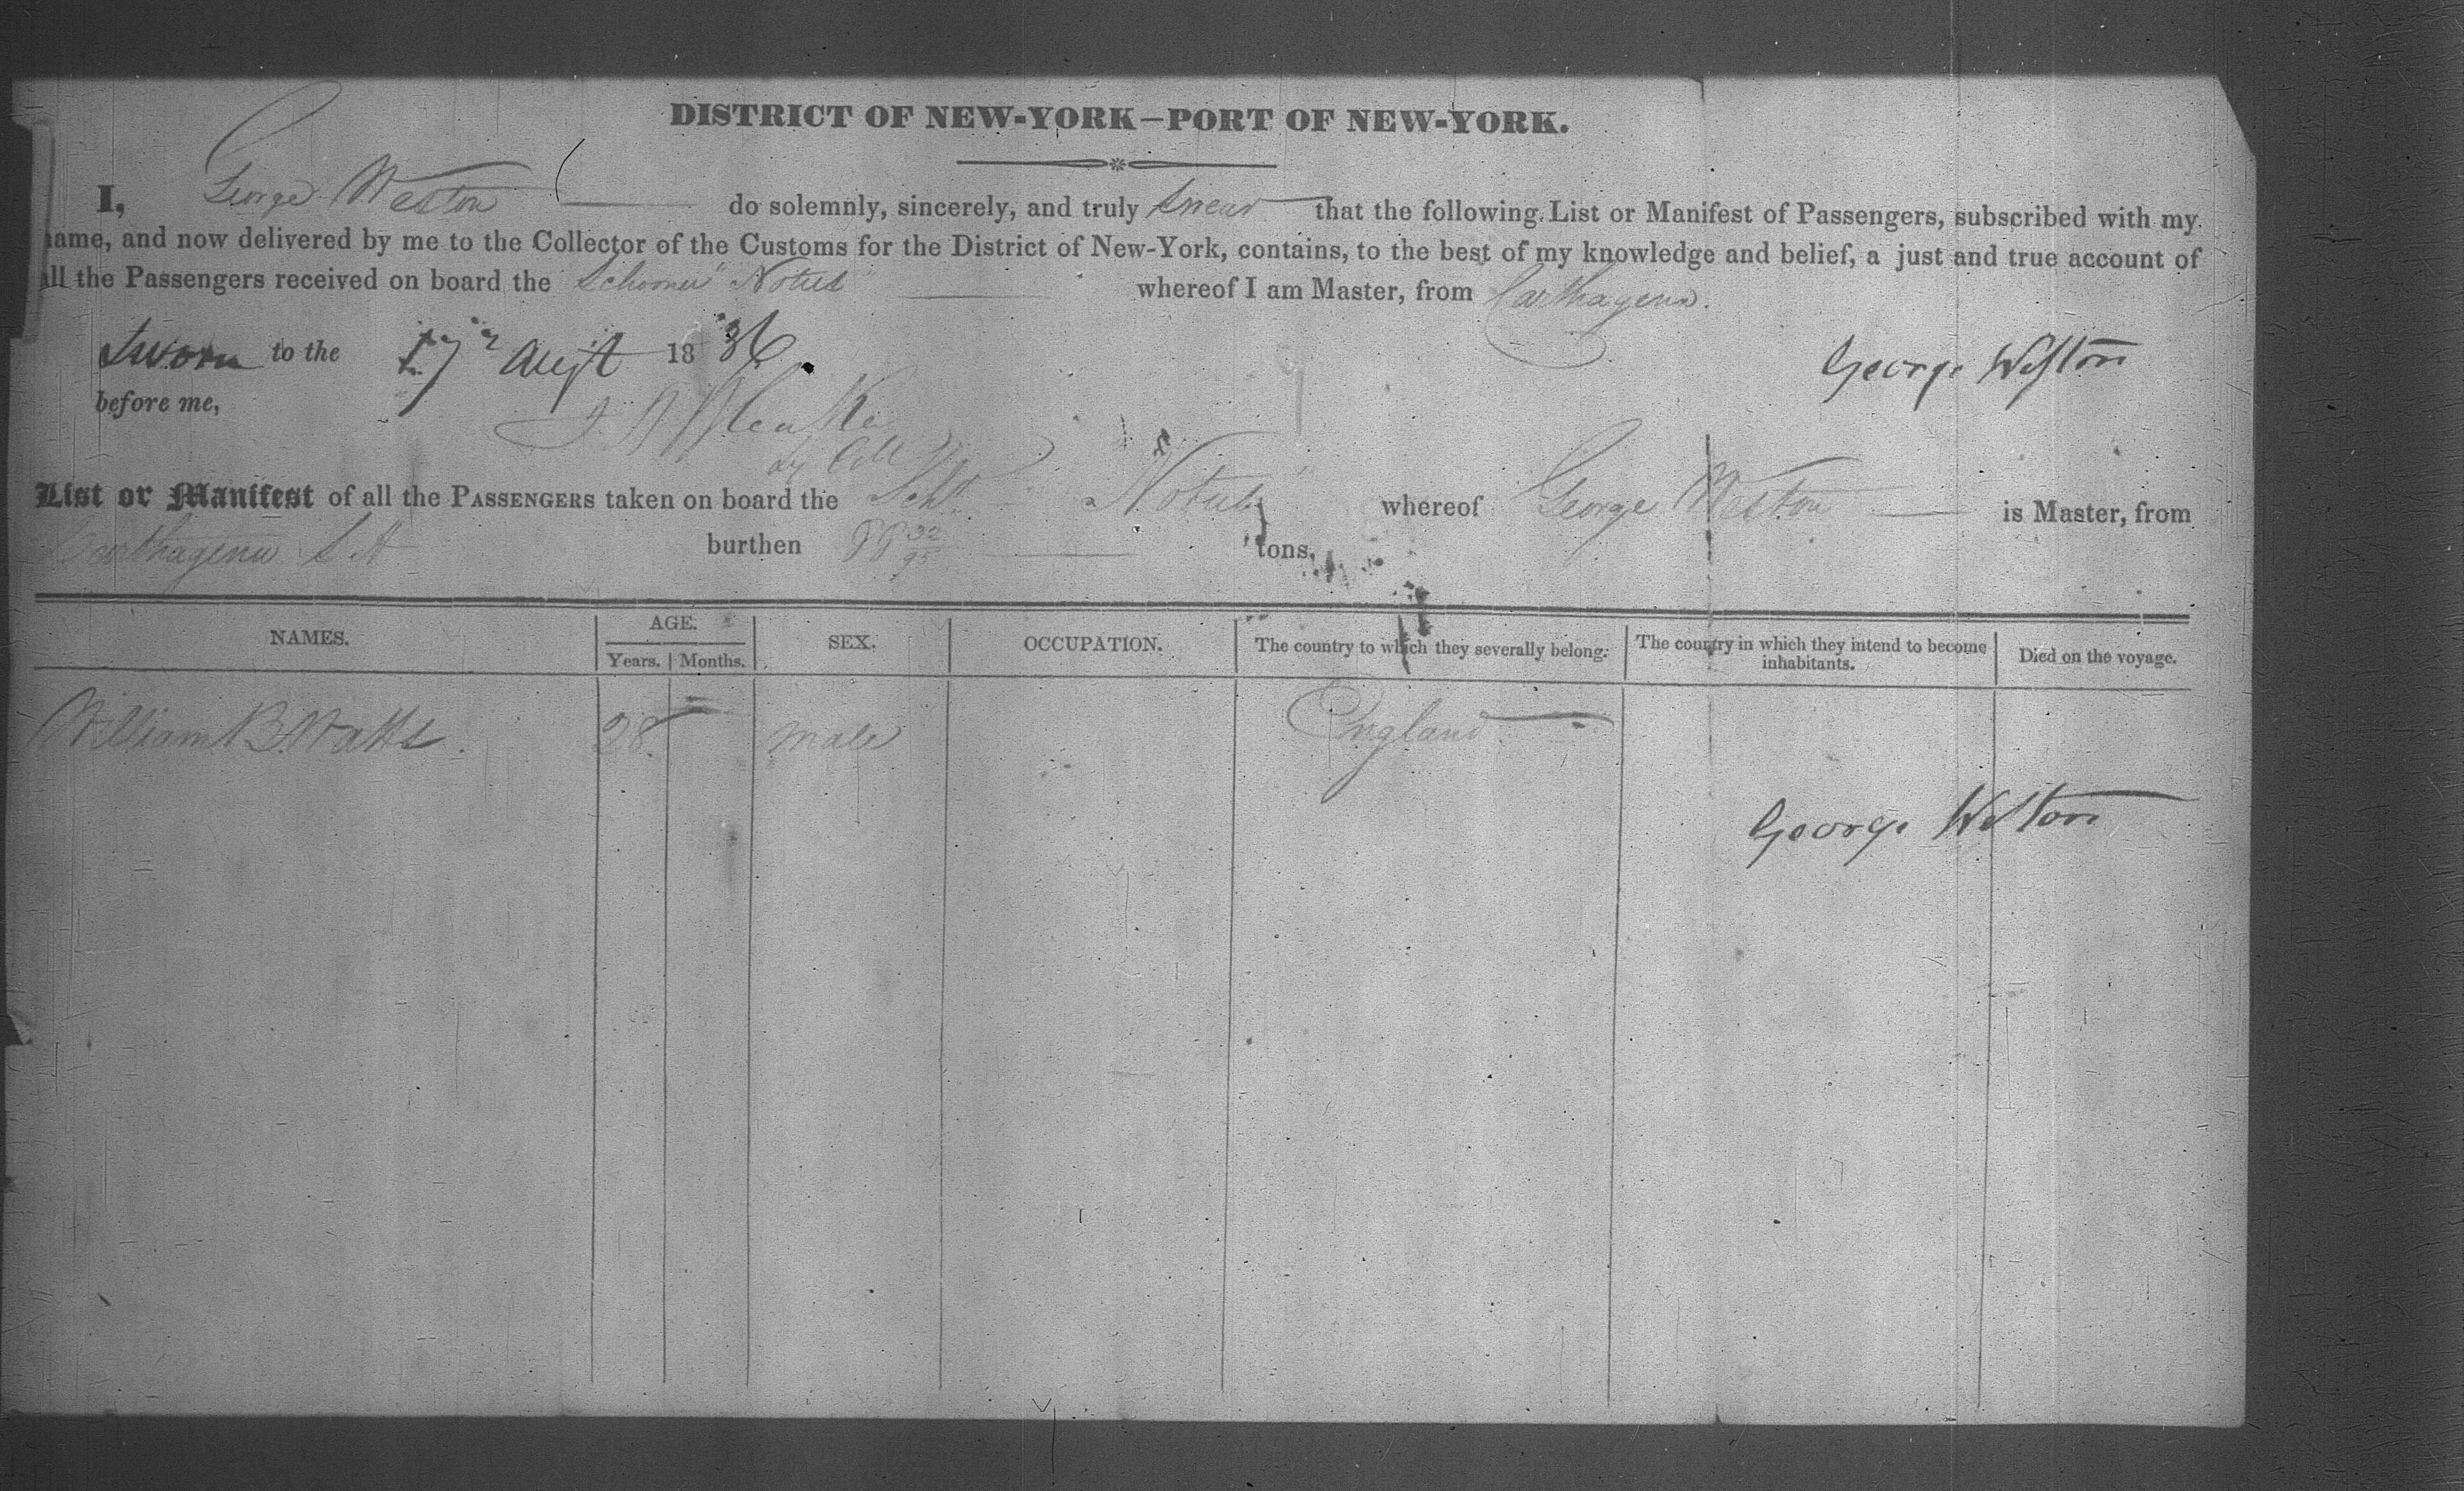 DISTRICT OF NEW-YORK—PORT OF NEW-YORK.
I, George Weston do solemnly, sincerely, and truly swear that the following List or Manifest of Passengers, subscribed with my
name, and now delivered by me to the Collector of the Customs for the District of New-York, contains, to the best of my knowledge and belief, a just and true account of
all the Passengers received on board the Schooner "Notus" whereof I am Master, from Carthagena.
Sworn to the 17 Augt 1836.
George Weston
before me,
List or Manifest of all the PASSENGERS taken on board the Schr Notus whereof George Weston is Master, from
Carthagena S A burthen 32/95 tons.
NAMES. AGE. SEX. OCCUPATION. The country to which they severally belong. The country in which they intend to become inhabitants. Died on the voyage.
Years. Months.
William B. Watts. 28 male England
George Weston